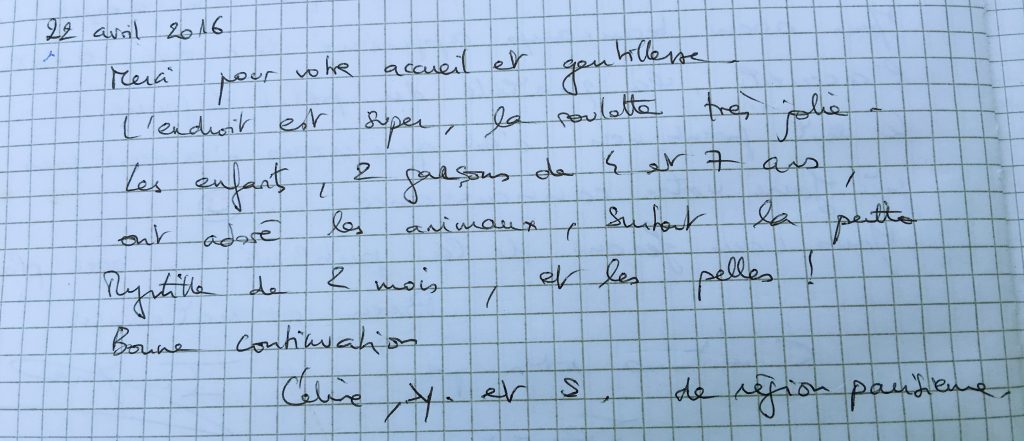 22 avril 2016
Merci pour votre accueil et gentillesse.
L'endroit est super, la roulotte très jolie.
Les enfants, 2 garçons de 4 et 7 ans,
ont adoré les animaux, surtout la petite
Myrtille de 2 mois, et les pelles !
Bonne continuation
Céline, Y. et S. de région parisienne.